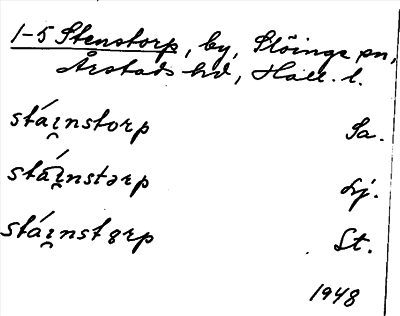 1-5 Stenstorp, by, Slöinge sn,
Årstads hd, Hall. l.
stái̯nstorp Sa.
stái̯nstərp Lj.
stái̯nstɐrp St.
1948